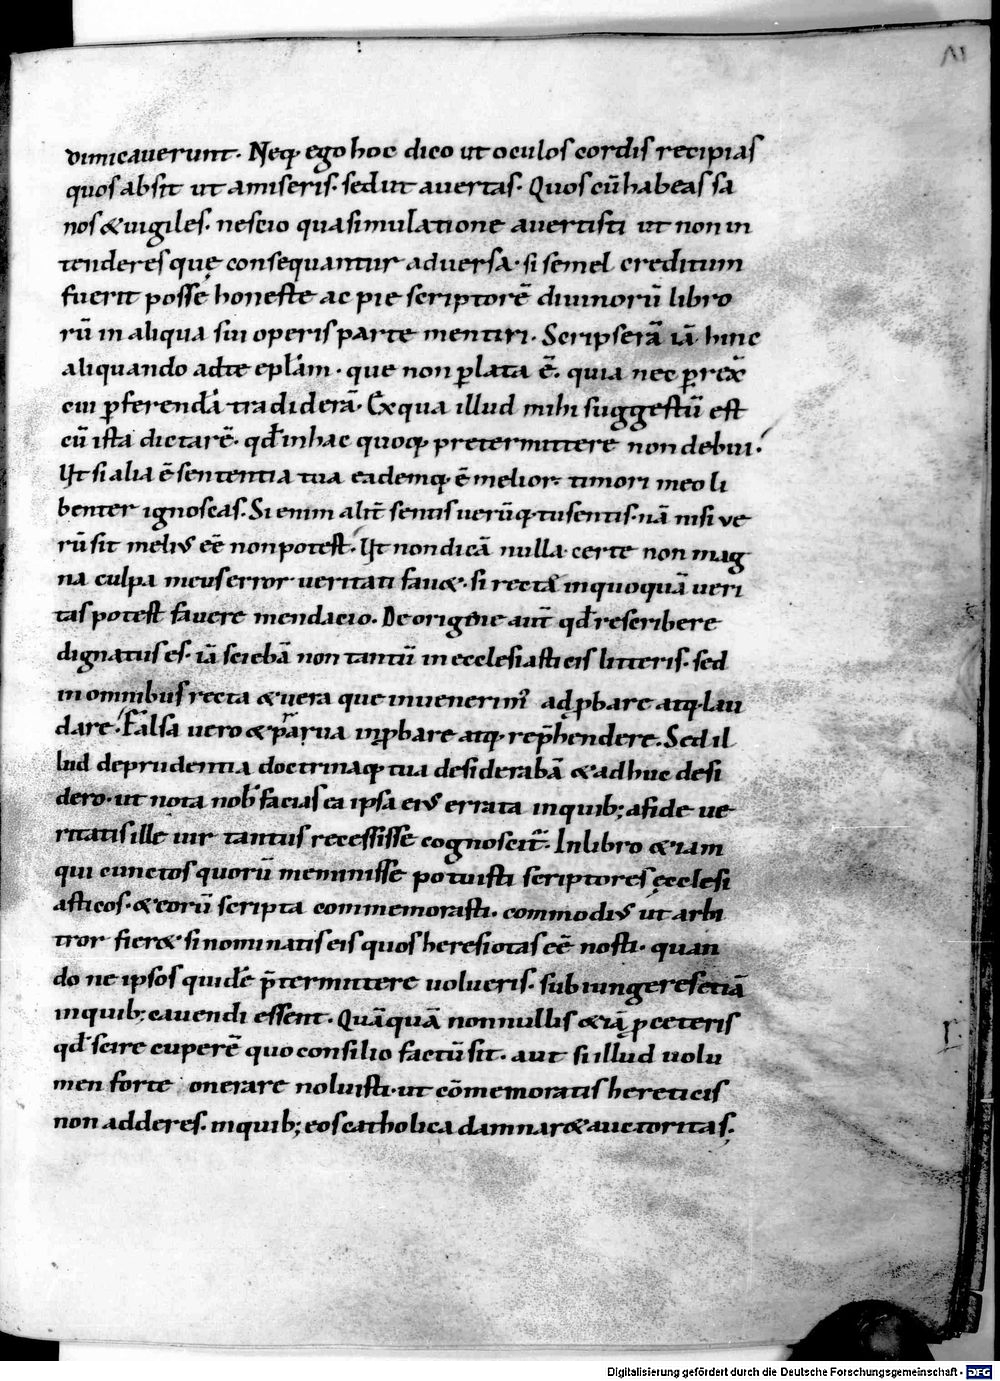 VI
dimicauerunt. Neq; ego hoc dico ut oculos cordis recipias
quos absit ut amiseris. sed ut auertas. Quos cū habeas sa
nos & uigiles. nescio qua simulatione auertisti ut non in
tenderes quę consequantur aduersa. si semel creditum
fuerit posse honeste ac pie scriptorē diuinorū libro
rū in aliqua sui operis parte mentiri. Scripserā iā hinc
aliquando adte eplām. que non p̄lata ē. quia nec p̄rex̄
cui p̄ferendā tradiderā. Ex qua illud mihi suggestū est
cū ista dictarē. qđ in hac quoq; pretermittere non debui.
Ut si alia ē sententia tua eademq; ē melior. timori meo li
benter ignoscas. Si enim alit̄ sentis uerūq; tu sentis. nā nisi ve
rū sit meliꝰ eē non potest. Ut non dicā nulla. certe non mag
na culpa meus error ueritati fau&. si rectā inquoquā ueri
tas potest fauere mendacio. De origene aut̄ qđ rescribere
dignatus es. iā sciebā non tantū in ecclesiasticis litteris. sed
in omnibus recta & uera que inuenerimꝰ adp̄bare atq; lau
dare. Falsa uero & praua inp̄bare atq; rep̄hendere. Sed il
lud deprudentia doctrinaq; tua desiderabā & adhuc desi
dero. ut nota nob̄ facias ea ipsa eiꝰ errata inquib; afide ue
ritatis ille uir tantus recessisse cognoscit̄. In libro &iam
qui cunctos quorū meminisse potuisti scriptores ęcclesi
asticos. & eorū scripta commemorasti. commodiꝰ ut arbi
tror fier& si nominatis eis quos heresiotas eē nosti. quan
do ne ipsos quidē p̄termittere uolueris. subiungeres etiā
inquib; cauendi essent. Quāquā nonnullis &iā p̄ceteris
qđ scire cuperē quo consilio factū sit. aut si illud uolu
men forte onerare noluisti. ut cōmemoratis hereticis
non adderes. inquib; eos catholica damnar& auctoritas.
Digitalisierung gefördert durch die Deutsche Forschungsgemeinschaft - DFG